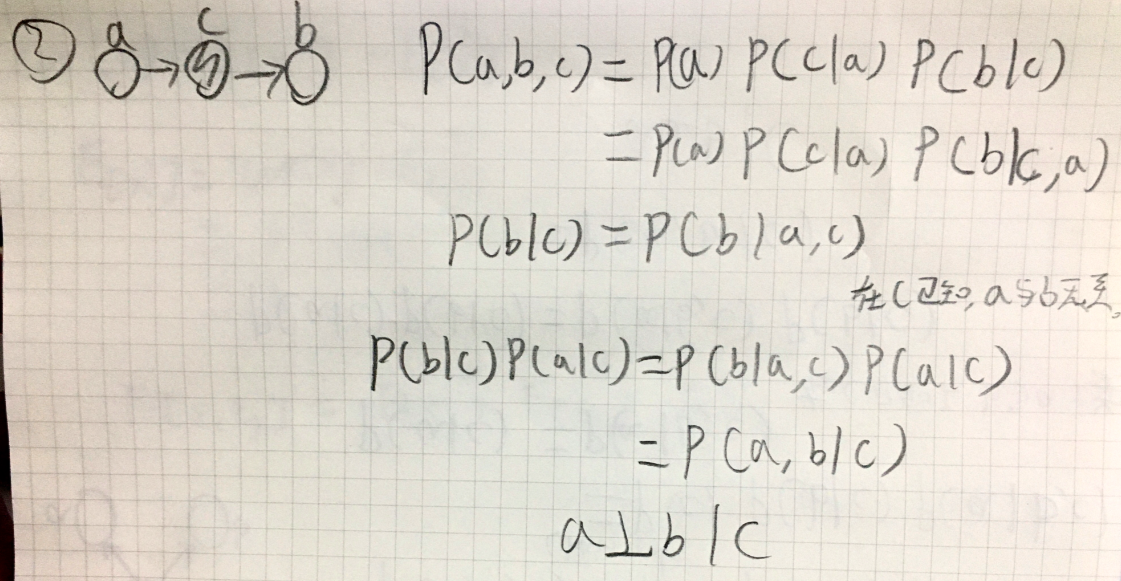 ② a → c → b P(a,b,c) = P(a) P(c|a) P(b|c)
= P(a) P(c|a) P(b|c,a)
P(b|c) = P(b|a,c)
在c已知,a与b无关。
P(b|c)P(a|c) = P(b|a,c)P(a|c)
= P(a,b|c)
a⊥b|c